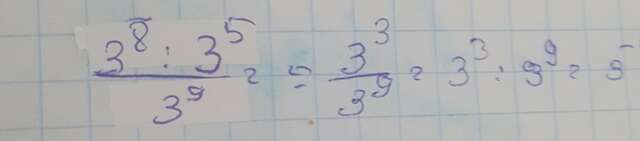 3⁸ : 3⁵ / 3⁹ = = 3³ / 3⁹ = 3³ : 9⁹ = 9⁻